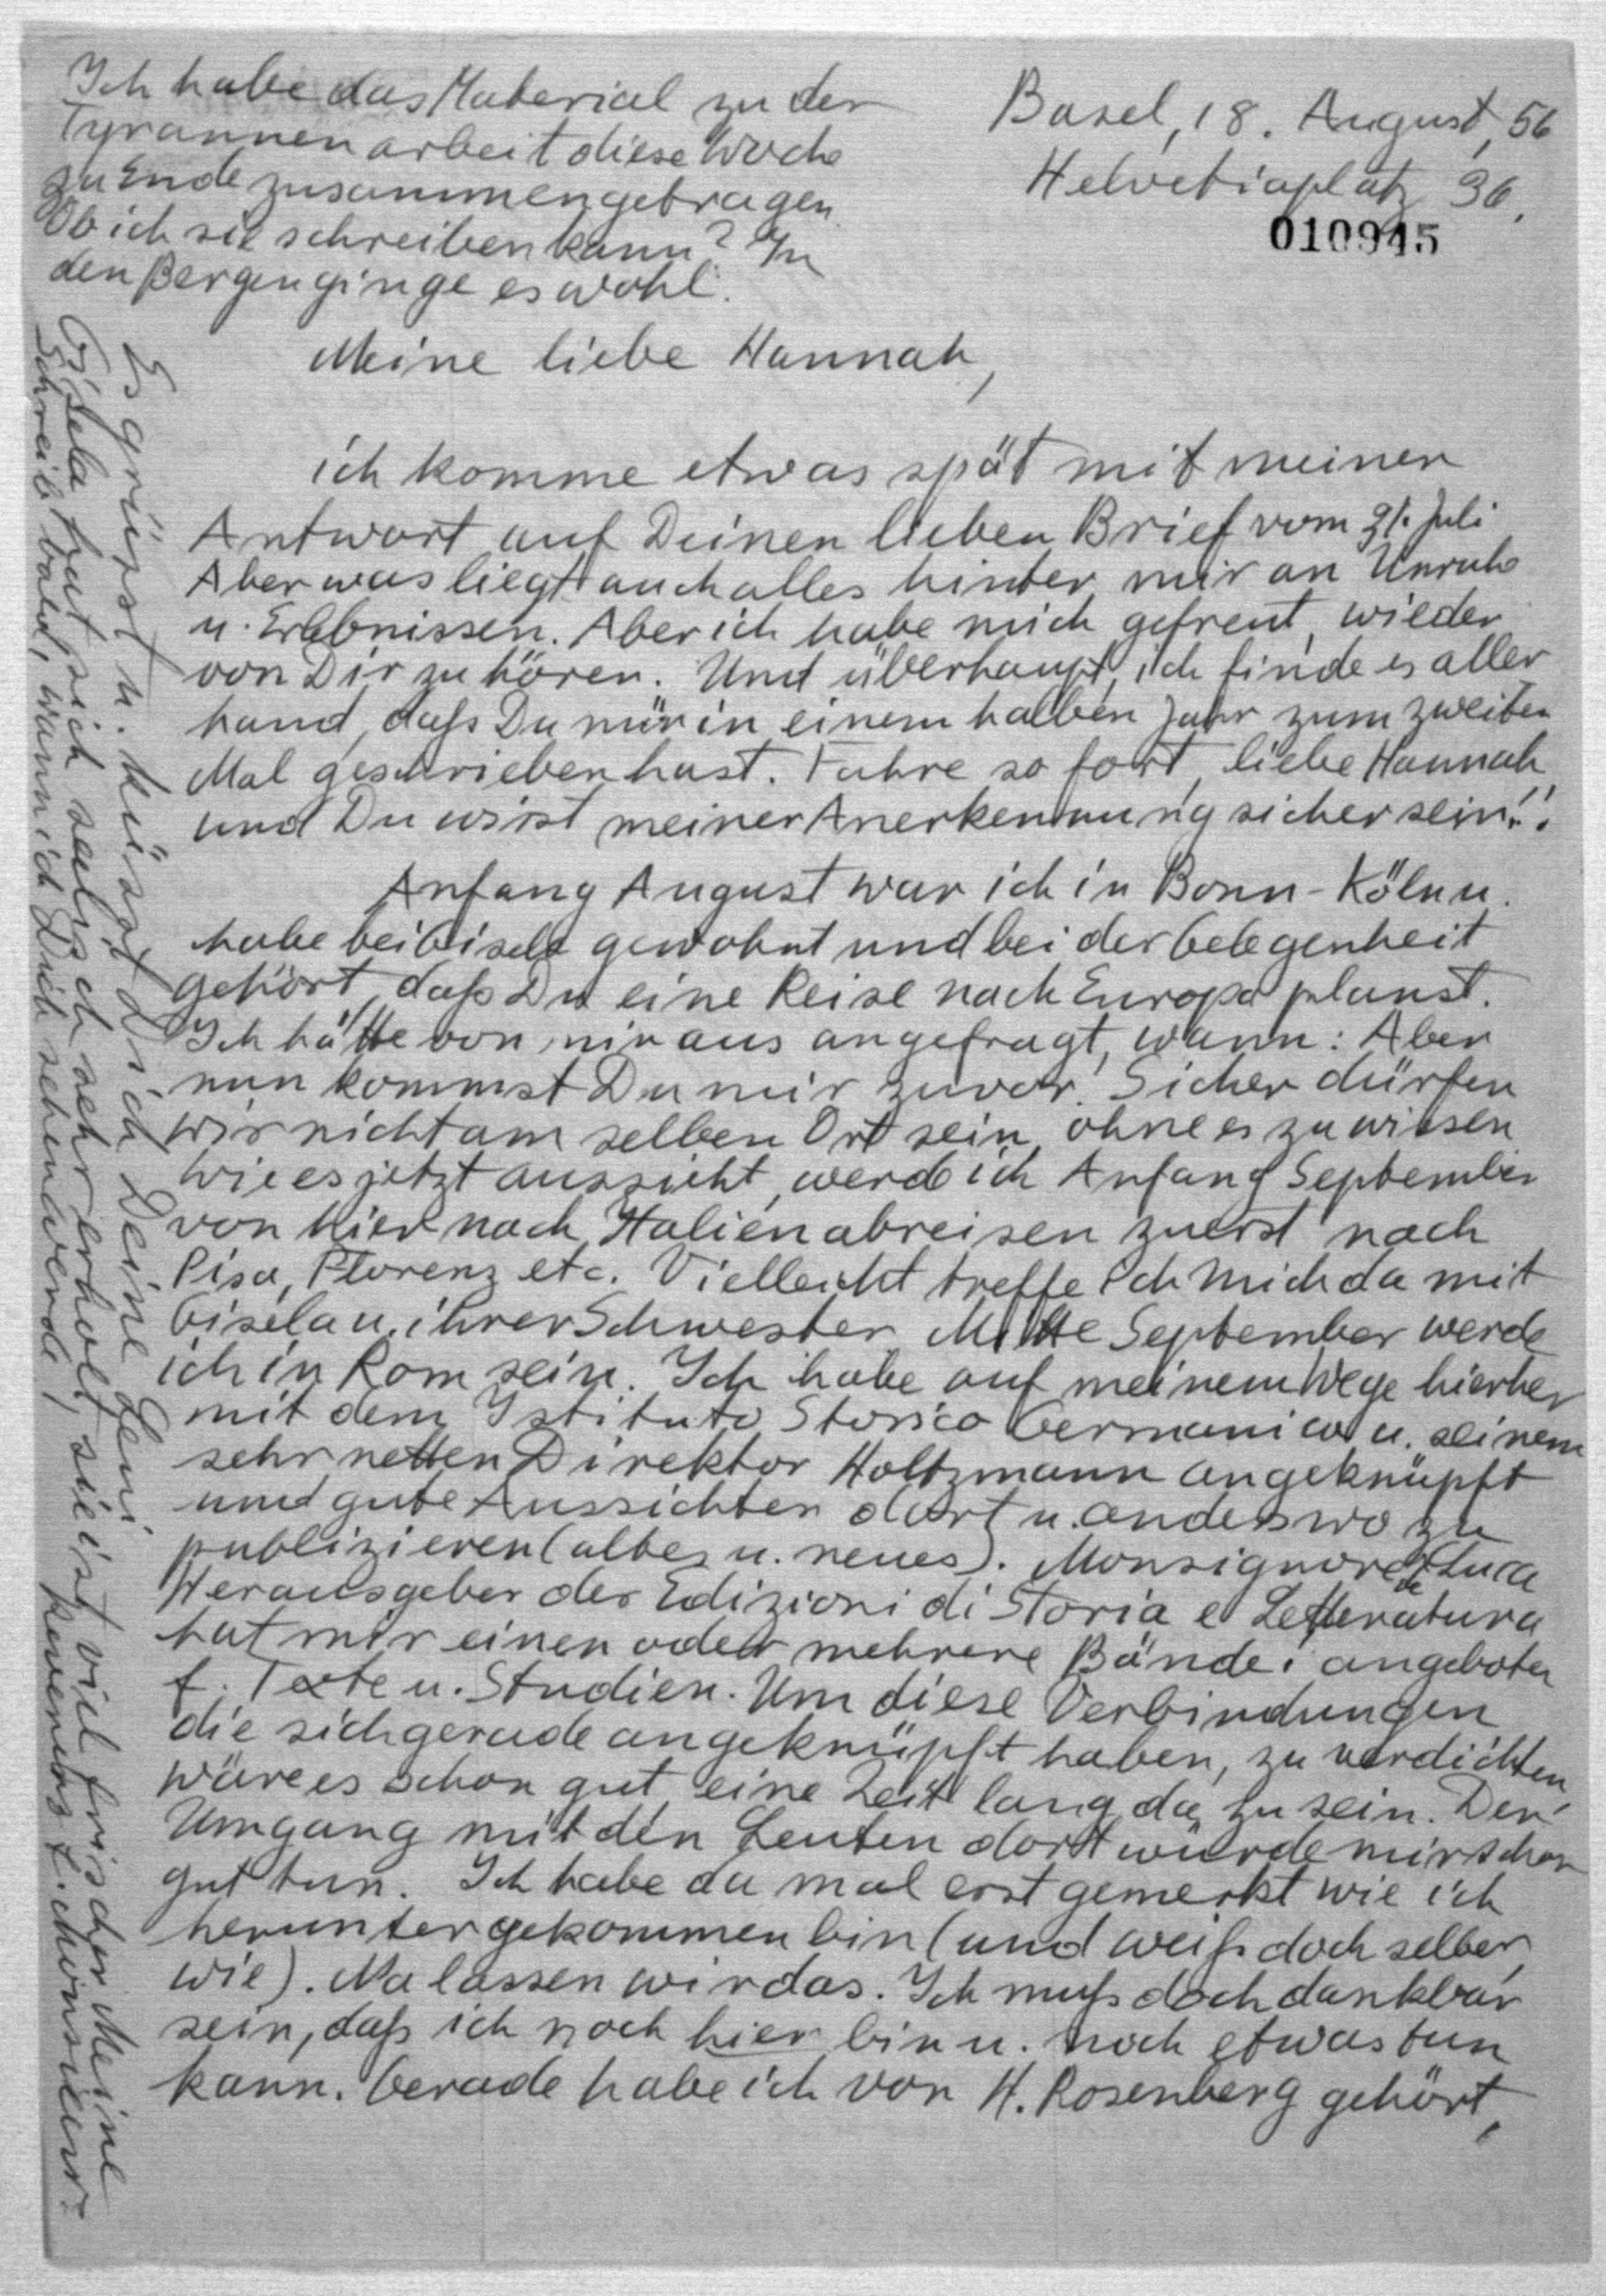 Ich habe das Material zu der
Tyrannenarbeit diese Woche
zu Ende zusammengetragen
Ob ich sie schreiben kann? In
den Bergen ginge es wohl.
Basel, 18. August, 56
Helvetiaplatz 36.
010945
Meine liebe Hannah,
ich komme etwas spät mit meiner
Antwort auf Deinen lieben Brief vom 31. Juli
Aber was liegt auch alles hinter mir an Unruhe
u. Erlebnissen. Aber ich habe mich gefreut, wieder
von Dir zu hören. Und überhaupt, ich finde es aller
hand, daß Du mir in einem halben Jahr zum zweiten
Mal geschrieben hast. Fahre so fort, liebe Hannah,
und Du wirst meiner Anerkennung sicher sein!!
Anfang August war ich in Bonn-Köln u.
habe bei Gisela gewohnt und bei der Gelegenheit
gehört, daß Du eine Reise nach Europa planst.
Ich hätte von mir aus angefragt, wann: Aber
nun kommst Du mir zuvor. Sicher dürfen
wir nicht am selben Ort sein, ohne es zu wissen
Wie es jetzt aussieht, werde ich Anfang September
von hier nach Italien abreisen zuerst nach
Pisa, Florenz etc. Vielleicht treffe ich mich da mit
Gisela u. ihrer Schwester. Mitte September werde
ich in Rom sein. Ich habe auf meinem Wege hierher
mit dem Istituto Storico Germanico u. seinem
sehr netten Direktor Holtzmann angeknüpft
und gute Aussichten dort u. anderswo zu
publizieren (altes u. neues). Monsignore de Luca
Herausgeber der Edizioni di Storia e Letteratura
hat mir einen oder mehrere Bände angeboten
f. Texte u. Studien. Um diese Verbindungen
die sich gerade angeknüpft haben, zu verdichten,
wäre es schon gut eine Zeit lang da zu sein. Der
Umgang mit den Leuten dort würde mir schon
gut tun. Ich habe da mal erst gemerkt wie ich
heruntergekommen bin (und weiß doch selber,
wie). Na lassen wir das. Ich muß doch dankbar
sein, daß ich noch hier bin u. noch etwas tun
kann. Gerade habe ich von H. Rosenberg gehört,
Es grüsst u. küsst Dich Deine Leni
Gisela hat sich seelisch sehr erholt, sie ist viel frischer. Meine
Schreib bald, wann ich Dich sehen werde,